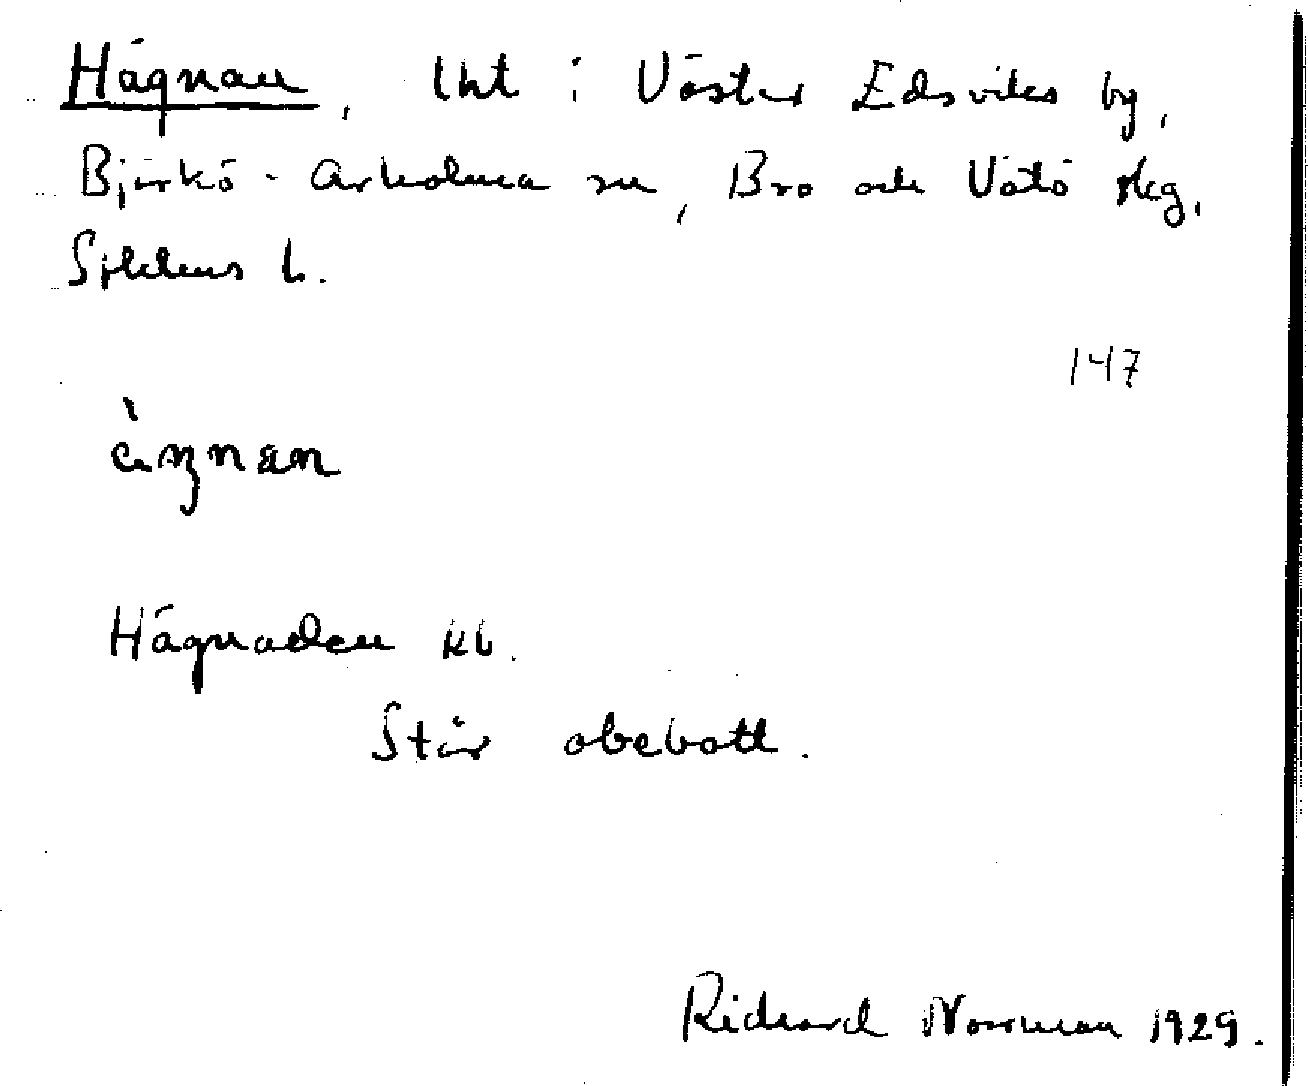 Hägnan, lht i Väster Edsviks by,
Björkö-Arholma sn, Bro och Vätö skg,
Sthlms l.
147
Hägnaden kb.
Står obebott.
Richard Norrman 1929.